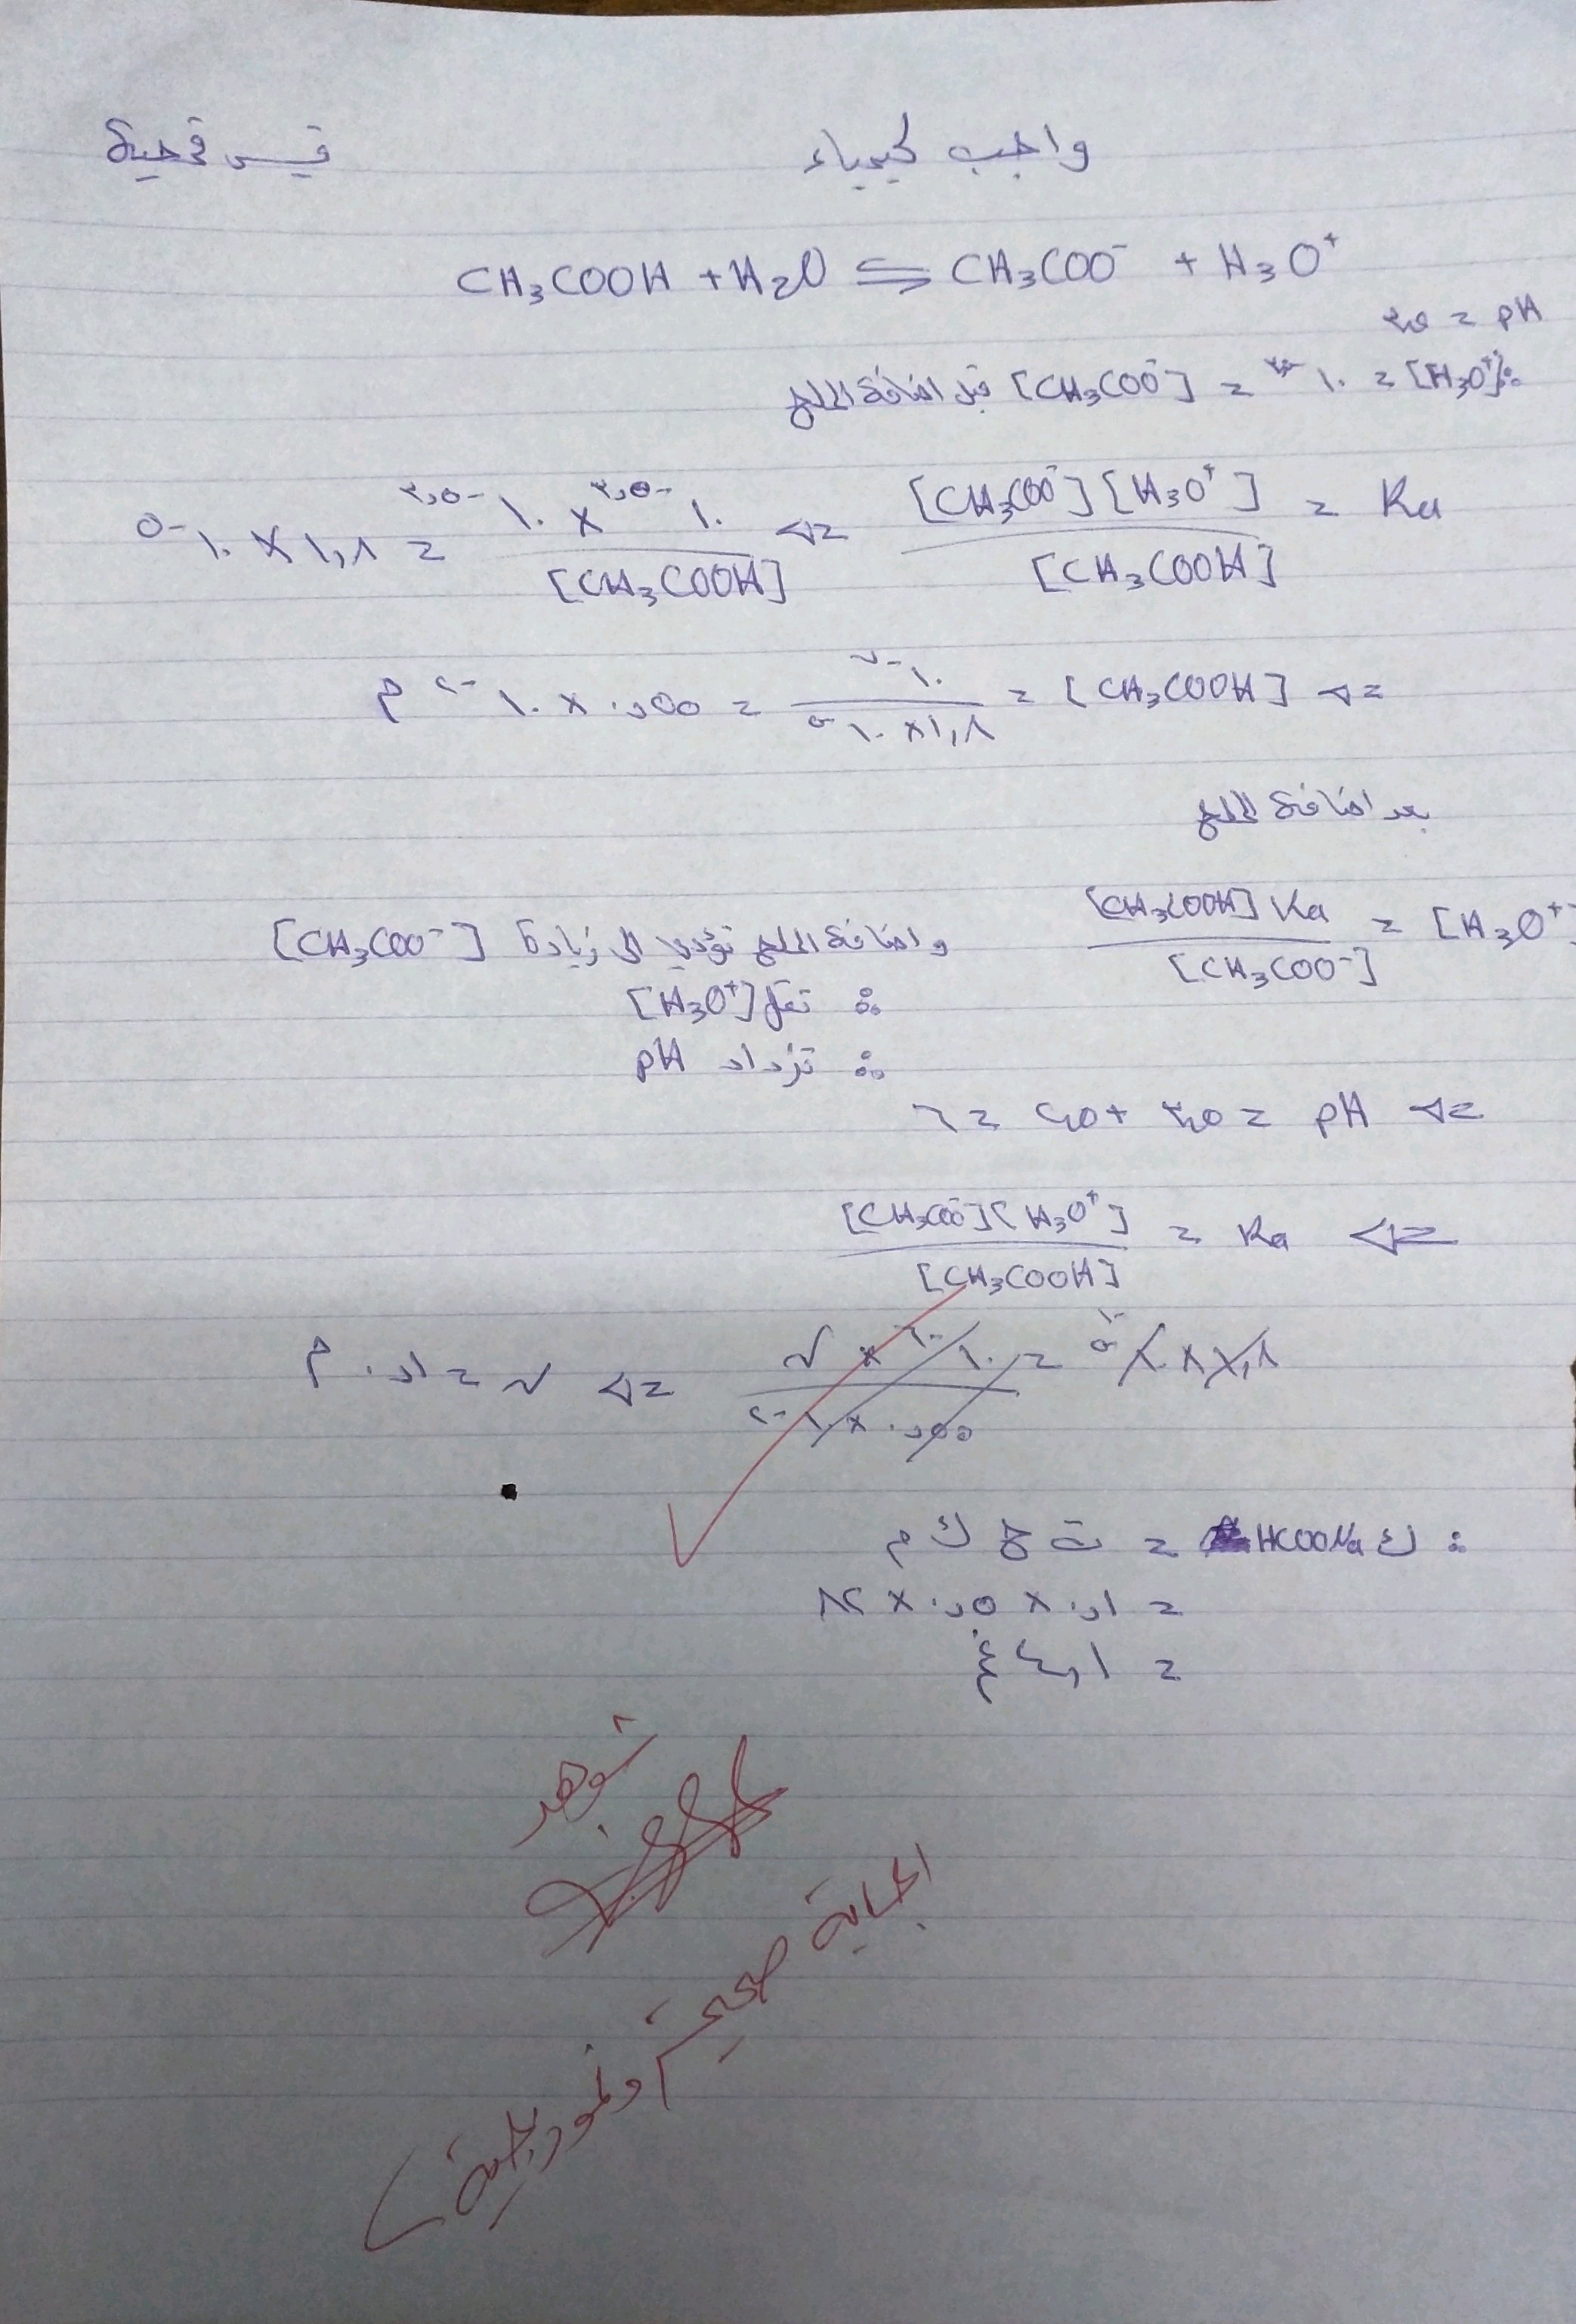 واجب كيمياء
CH₃COOH + H₂O ⇌ CH₃COO⁻ + H₃O⁺
pH = ٣,٥
∴ [H₃O⁺] = ١٠⁻³,⁵ = [CH₃COO⁻] قبل اضافة الملح
Ka = [CH₃COO⁻][H₃O⁺] / [CH₃COOH] ⇐ ١٠⁻³,⁵ × ١٠⁻³,⁵ / [CH₃COOH] = ١,٨ × ١٠⁻⁵
⇐ [CH₃COOH] = ١٠⁻⁷ / ١,٨ × ١٠⁻⁵ = ٠,٥٥ × ١٠⁻² م
بعد اضافة الملح
[H₃O⁺] = Ka [CH₃COOH] / [CH₃COO⁻] واضافة الملح تؤدي الى زيادة [CH₃COO⁻]
∴ تقل [H₃O⁺]
∴ تزداد pH
⇐ pH = ٣,٥ + ٢,٥ = ٦
⇐ Ka = [CH₃COO⁻][H₃O⁺] / [CH₃COOH]
١,٨ × ١٠⁻⁵ = ١٠⁻⁶ × س / ٠,٥٥ × ١٠⁻² ⇐ س = ٠,١ م
∴ ك HCOONa = ت ح ك م
= ٠,١ × ٠,٥ × ٨٢
= ٤,١ غ
شوهد
اجابة صحيحة ونموذجية